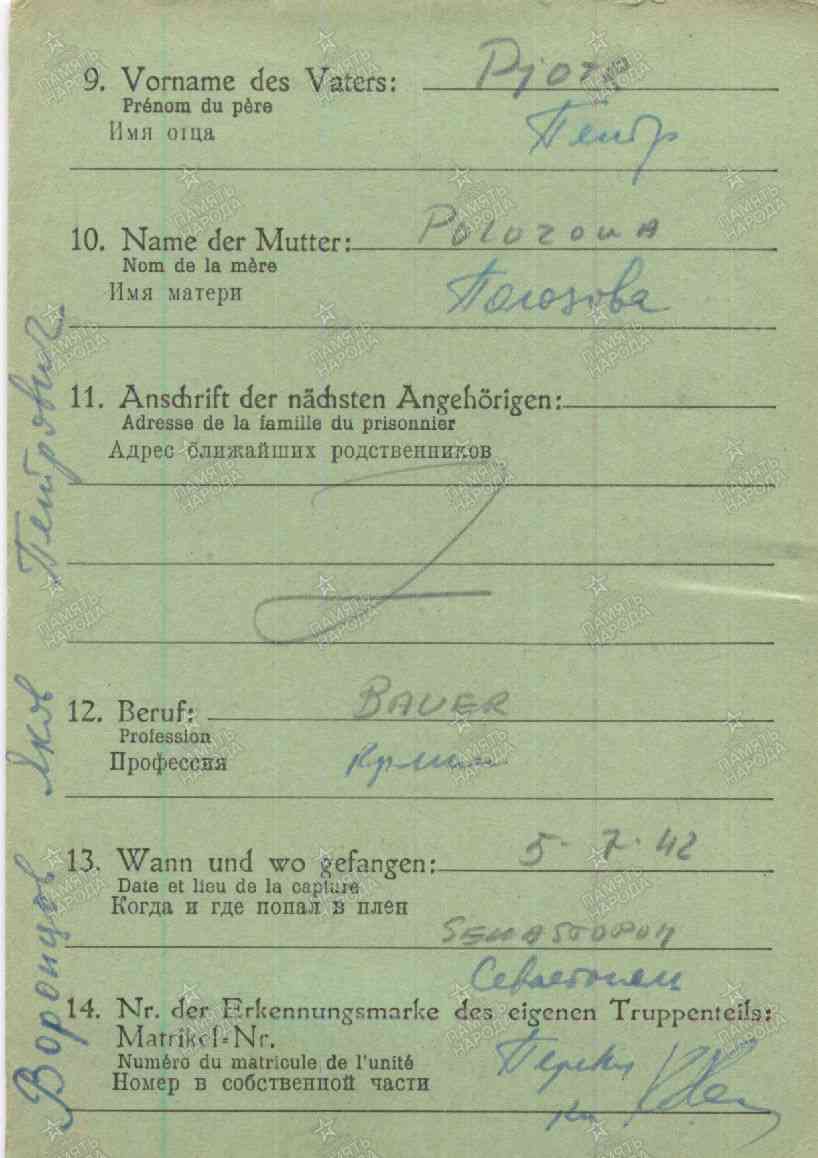 9. Vorname des Vaters: Pjotr
Prénom du père
Имя отца Петр
10. Name der Mutter: Polozowa
Nom de la mère
Имя матери Полозова
11. Anschrift der nächsten Angehörigen:
Adresse de la famille du prisonnier
Адрес ближайших родственников
12. Beruf: BAUER
Profession
Профессия
13. Wann und wo gefangen: 5. 7. 42
Date et lieu de la capture
Когда и где попал в плен
SEWASTOPOL
Севастополь
14. Nr. der Erkennungsmarke des eigenen Truppenteils:
Matrikel-Nr.
Numéro du matricule de l'unité
Номер в собственной части
Воронцов Яков Петрович
ПАМЯТЬ НАРОДА